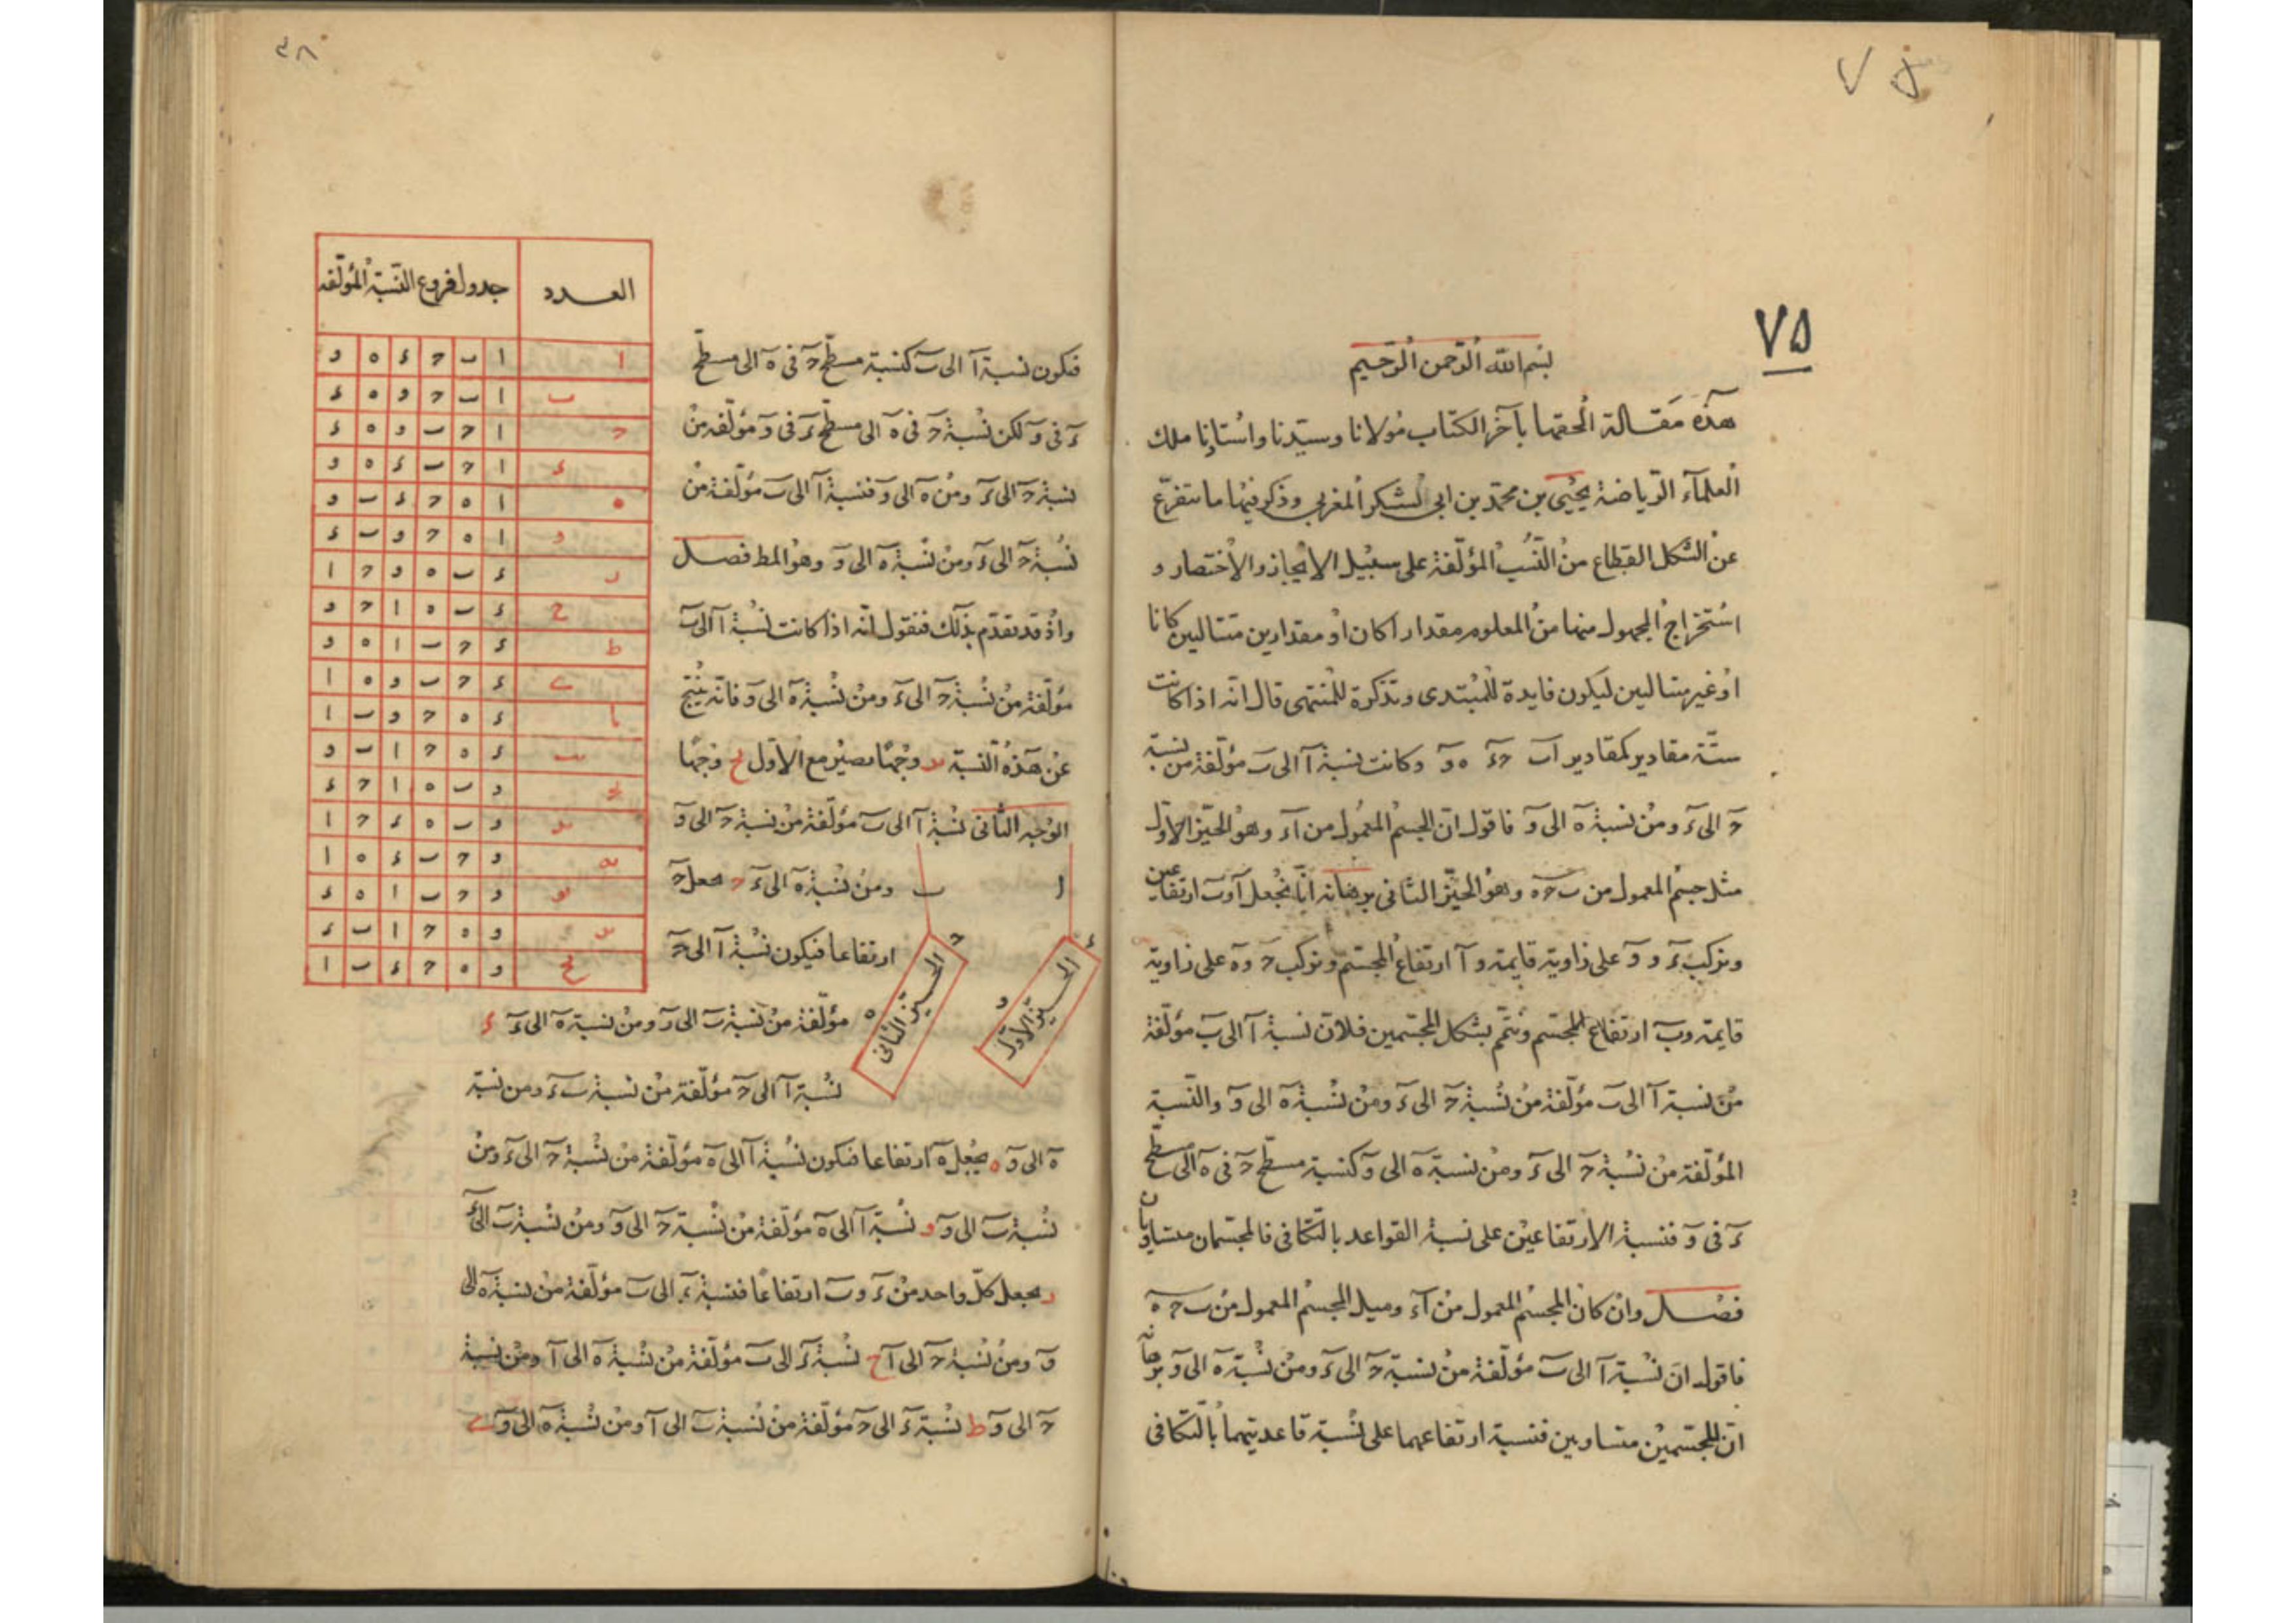 ٧٥
بسم الله الرحمن الرحيم
هذه مقالة الحقها بآخر الكتاب مولانا وسيدنا واستاذنا ملك
العلماء الرياضة يحيى بن محمد بن ابي الشكر المغربي وذكر فيها ما يتفرع
عن الشكل القطاع من النسب المؤلفة على سبيل الايجاز والاختصار و
استخراج المجهول منها من المعلوم مقدارا كان او مقدارين متتاليين كانا
او غير متتاليين ليكون فايدة للمبتدى وتذكرة للمنتهى قال انه اذا كانت
ستة مقادير كمقادير اب حء ه و وكانت نسبة آ الى ب مؤلفة من نسبة
ح الى ء ومن نسبة ه الى و فاقول ان المجسم المعمول من آ ء و وهو الحيز الاول
مثل جسم المعمول من ب ح ه وهو الحيز الثاني برهانه انا نجعل آ وب ارتفاعين
ونركب ء و و على زاوية قايمة و آ ارتفاع المجسم ونركب ح و ه على زاوية
قايمة وب ارتفاع المجسم ونتم بشكل المجسمين فلان نسبة آ الى ب مؤلفة
من نسبة آ الى ب مؤلفة من نسبة ح الى ء ومن نسبة ه الى و والنسبة
المؤلفة من نسبة ح الى ء ومن نسبة ه الى و كنسبة مسطح ح في ه الى مسطح
ء في و فنسبة الارتفاعين على نسبة القواعد بالتكافي فالمجسمان متساويان
فصل وان كان المجسم المعمول من آ ء و مثل المجسم المعمول من ب ح ه
فاقول ان نسبة آ الى ب مؤلفة من نسبة ح الى ء ومن نسبة ه الى و برهانه
ان المجسمين متساويين فنسبة ارتفاعهما على نسبة قاعدتيهما بالتكافي
فتكون نسبة آ الى ب كنسبة مسطح ح في ه الى مسطح
ء في و لكن نسبة ح في ه الى مسطح ء في و مؤلفة من
نسبة ح الى ء ومن ه الى و فنسبة آ الى ب مؤلفة من
نسبة ح الى ء ومن نسبة ه الى و وهو المط فصل
واذ قد تقدم بذلك فنقول انه اذا كانت نسبة آ الى ب
مؤلفة من نسبة ح الى ء ومن نسبة ه الى و فانه ينتج
عن هذه النسبة يد وجها يصير مع الاول يح وجها
الوجه الثاني نسبة آ الى ب مؤلفة من نسبة ح الى و
ومن نسبة ه الى ء ح نجعل ح
ارتفاعا فيكون نسبة آ الى ح
مؤلفة من نسبة ب الى و ومن نسبة ه الى ء ء
نسبة آ الى ح مؤلفة من نسبة ب ء ومن نسبة
ه الى و ه نجعل ه ارتفاعا فتكون نسبة آ الى ه مؤلفة من نسبة ح الى ء ومن
نسبة ب الى و و نسبة آ الى ه مؤلفة من نسبة ح الى و ومن نسبة ب الى ء
ر نجعل كل واحد من ء و ب ارتفاعا فنسبة ء الى ب مؤلفة من نسبة ه الى
و ومن نسبة ح الى آ ح نسبة ء الى ب مؤلفة من نسبة ه الى آ ومن نسبة
ح الى و ط نسبة ء الى ح مؤلفة من نسبة ب الى آ ومن نسبة ه الى و ى
ا
ب
ء
و
الحيز الاول
ح
ه
الحيز الثاني
العدد جدول فروع النسبة المؤلفه
ا ا ب ح ء ه و
ب ا ب ح و ه ء
ح ا ح ب و ه ء
ء ا ح ب ء ه و
ه ا ه ح ء ب و
و ا ه ح و ب ء
ر ء ب ه و ح ا
ح ء ب ه ا ح و
ط ء ح ب ا ه و
ى ء ح ب و ه ا
يا ء ه ح و ب ا
يب ء ه ح ا ب و
يح و ب ه ا ح ء
يد و ب ه ء ح ا
يه و ح ب ء ه ا
يو و ح ب ا ه ء
ير و ه ح ا ب ء
يح و ه ح ء ب ا